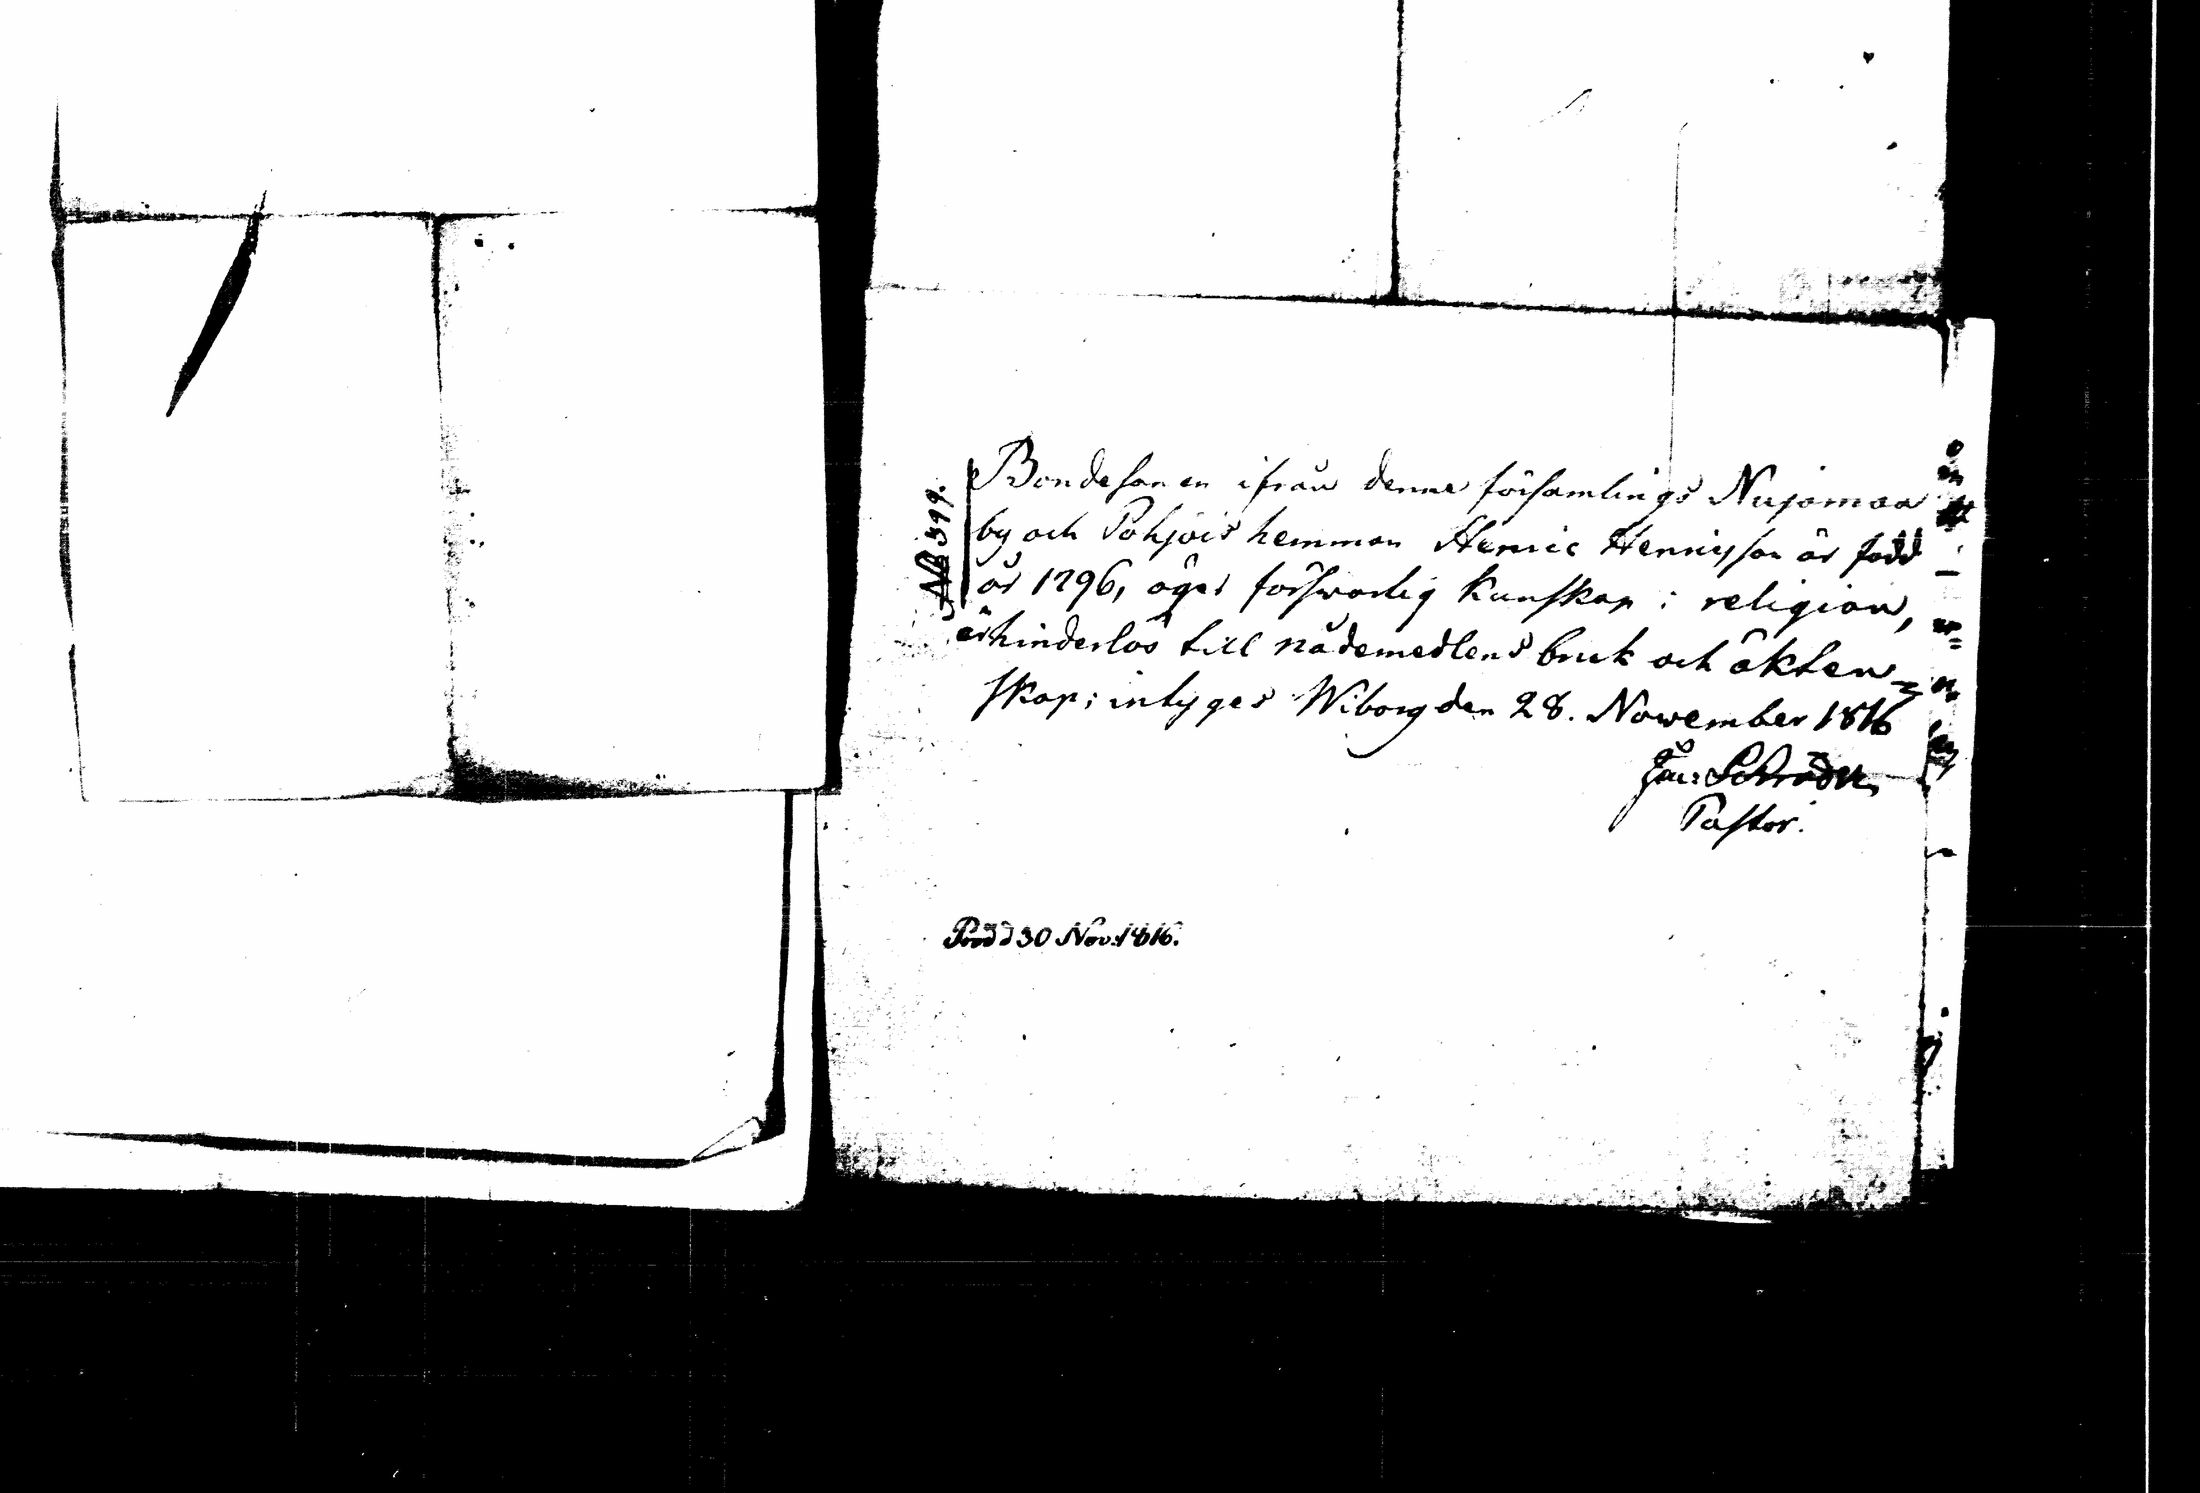 № 399.
Bondesonen ifrån denna församlings Nujamaa
by och Pohjois hemman Henric Henricsson är född
år 1796, äger försvarlig kunskap i religion,
är hinderlös till nådemedlens bruk och äkten-
skap; intygas Wiborg den 28. November 1816
Schröder
Pastor.
Prod d 30 Nov: 1816.